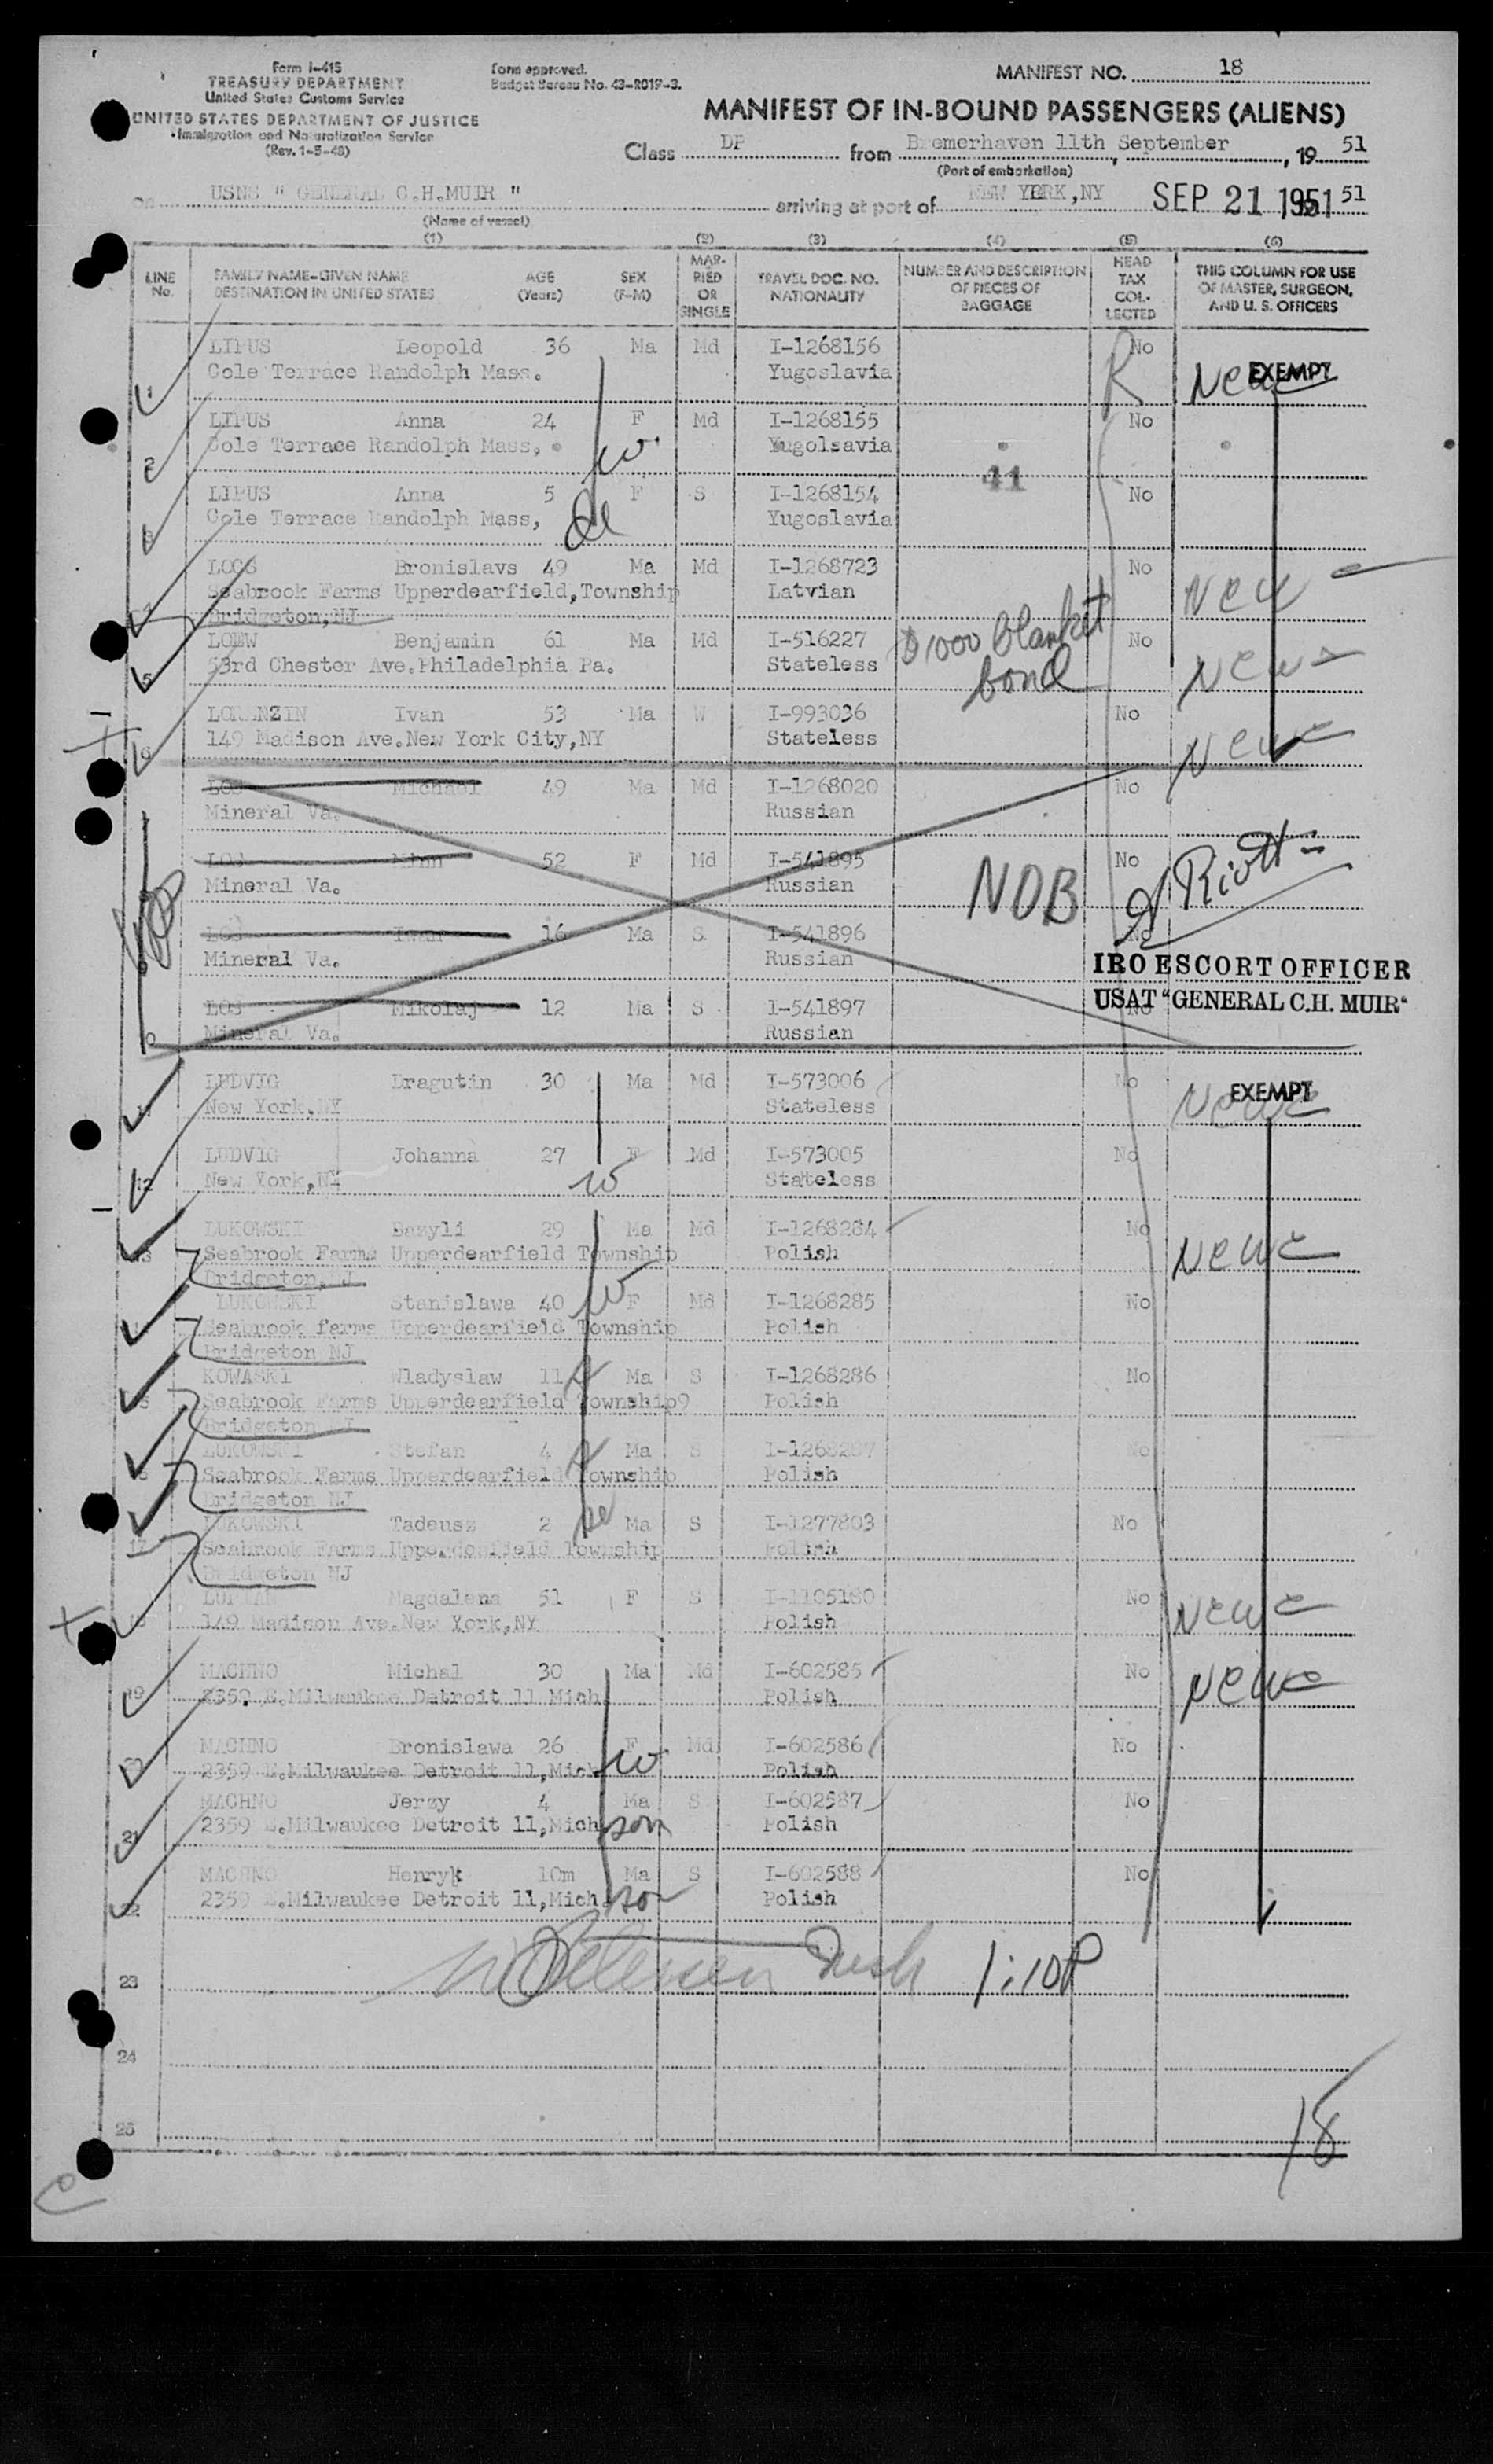 Form I-415
TREASURY DEPARTMENT
United States Customs Service
UNITED STATES DEPARTMENT OF JUSTICE
Immigration and Naturalization Service
(Rev. 1-5-48)
Form approved.
Budget Bureau No. 43-R019-3.
MANIFEST NO. 18
MANIFEST OF IN-BOUND PASSENGERS (ALIENS)
Class DP from Bremerhaven 11th September, 19 51
(Port of embarkation)
USNS " GENERAL C.H.MUIR " arriving at port of NEW YORK,NY SEP 21 1951 51
(Name of vessel)
(1) (2) (3) (4) (5) (6)
LINE No.
FAMILY NAME-GIVEN NAME
DESTINATION IN UNITED STATES
AGE (Years)
SEX (F-M)
MARRIED OR SINGLE
TRAVEL DOC. NO.
NATIONALITY
NUMBER AND DESCRIPTION OF PIECES OF BAGGAGE
HEAD TAX COLLECTED
THIS COLUMN FOR USE OF MASTER, SURGEON, AND U. S. OFFICERS
1 LIPUS Leopold 36 Ma Md I-1268156 No EXEMPT
Cole Terrace Randolph Mass. Yugoslavia R
2 LIPUS Anna 24 F Md I-1268155 No
Cole Terrace Randolph Mass, w. Yugolsavia
41
3 LIPUS Anna 5 F S I-1268154 No
Cole Terrace Randolph Mass, Yugoslavia
LOCS Bronislavs 49 Ma Md I-1268723 No
Seabrook Farms Upperdearfield,Township Latvian
Bridgeton,NJ
5 LOEW Benjamin 61 Ma Md I-516227 $1000 blanket bond No
53rd Chester Ave.Philadelphia Pa. Stateless
LORENZIN Ivan 53 Ma W I-993036 No
149 Madison Ave.New York City,NY Stateless
LOS Michael 49 Ma Md I-1268020 No
Mineral Va. Russian
LOS 52 F Md I-541895 No
Mineral Va. Russian NOB
LOS Iwan 16 Ma S I-541896 No
Mineral Va. Russian
IRO ESCORT OFFICER
USAT "GENERAL C.H. MUIR"
LOS Mikolaj 12 Ma S I-541897 No
Mineral Va. Russian
LUDVIG Dragutin 30 Ma Md I-573006 No EXEMPT
New York,NY Stateless
12 LUDVIG Johanna 27 F Md I-573005 No
New York,NY w Stateless
LUKOWSKI Bazyli 29 Ma Md I-1268284 No
Seabrook Farms Upperdearfield Township Polish
Bridgeton, J
LUKOWSKI Stanislawa 40 w F Md I-1268285 No
Seabrook farms Upperdearfield Township Polish
Bridgeton NJ
KOWASKI Wladyslaw 11 Ma S I-1268286 No
Seabrook Farms Upperdearfield Township9 Polish
Bridgeton J
LUKOWSKI Stefan 4 Ma S I-1268287 No
Seabrook Farms Upperdearfield Township Polish
Bridgeton NJ
LUKOWSKI Tadeusz 2 Ma S I-1277803 No
17 Seabrook Farms Upperdeafield Township Polish
Bridgeton NJ
Magdalena 51 F S I-1105180 No
149 Madison Ave.New York,NY Polish
19 MACHNO Michal 30 Ma Md I-602585 No
2359 E.Milwaukee Detroit 11 Mich. Polish
MACHNO Bronislawa 26 F Md I-602586 No
2359 E.Milwaukee Detroit 11,Mich w Polish
MACHNO Jerzy 4 Ma S I-602587 No
21 2359 E.Milwaukee Detroit 11,Mich son Polish
MACHNO Henryk 10m Ma S I-602588 No
22 2359 E.Milwaukee Detroit 11,Mich son Polish
23 1:10P
24
25
18